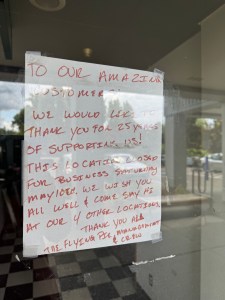 TO OUR AMAZING
WE WOULD LIKE TO
THANK YOU FOR 25 YEARS
OF SUPPORTING US!
THIS LOCATION
FOR BUSINESS SATURDAY
MAY 10TH, WE WISH YOU
ALL WELL & COME SAY HI
AT OUR 4 OTHER LOCATIONS
THANK YOU ALL
THE FLYING PIE MANAGEMENT
& CREW